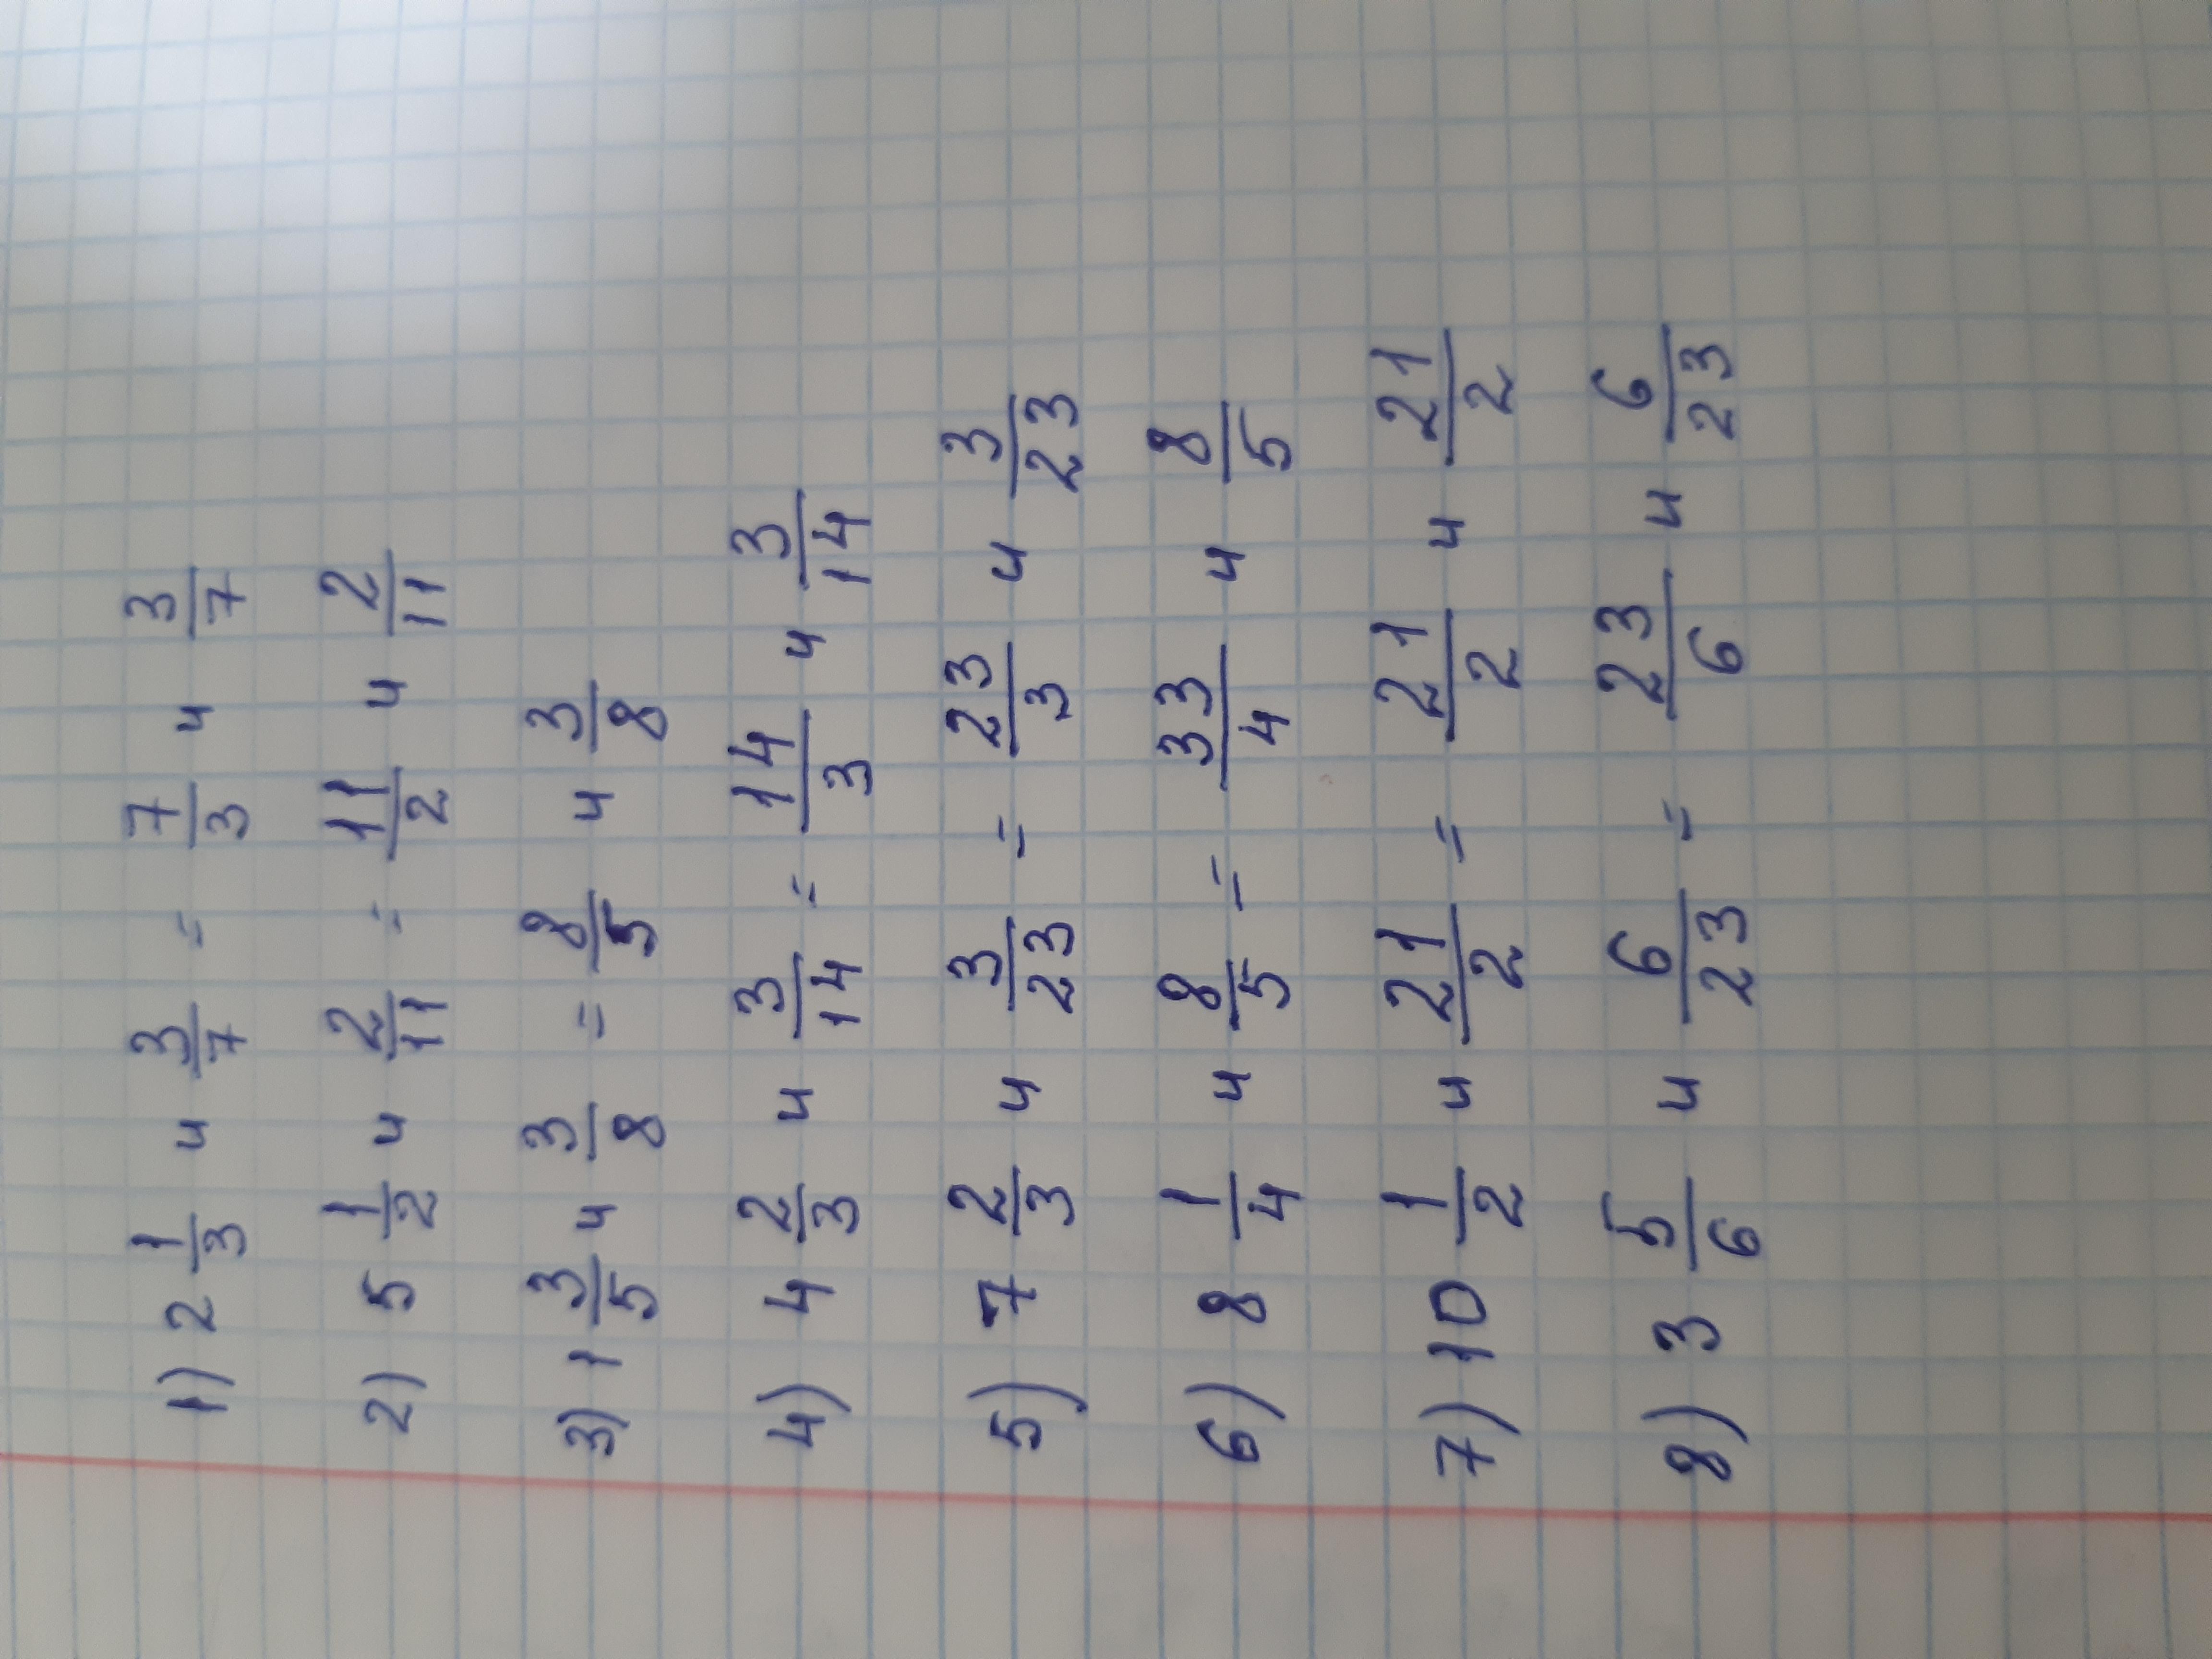 1) 2 1/3 и 3/7 = 7/3 и 3/7
2) 5 1/2 и 2/11 = 11/2 и 2/11
3) 1 3/5 и 3/8 = 8/5 и 3/8
4) 4 2/3 и 3/14 = 14/3 и 3/14
5) 7 2/3 и 3/23 = 23/3 и 3/23
6) 8 1/4 и 8/5 = 33/4 и 8/5
7) 10 1/2 и 21/2 = 21/2 и 21/2
8) 3 5/6 и 6/23 = 23/6 и 6/23